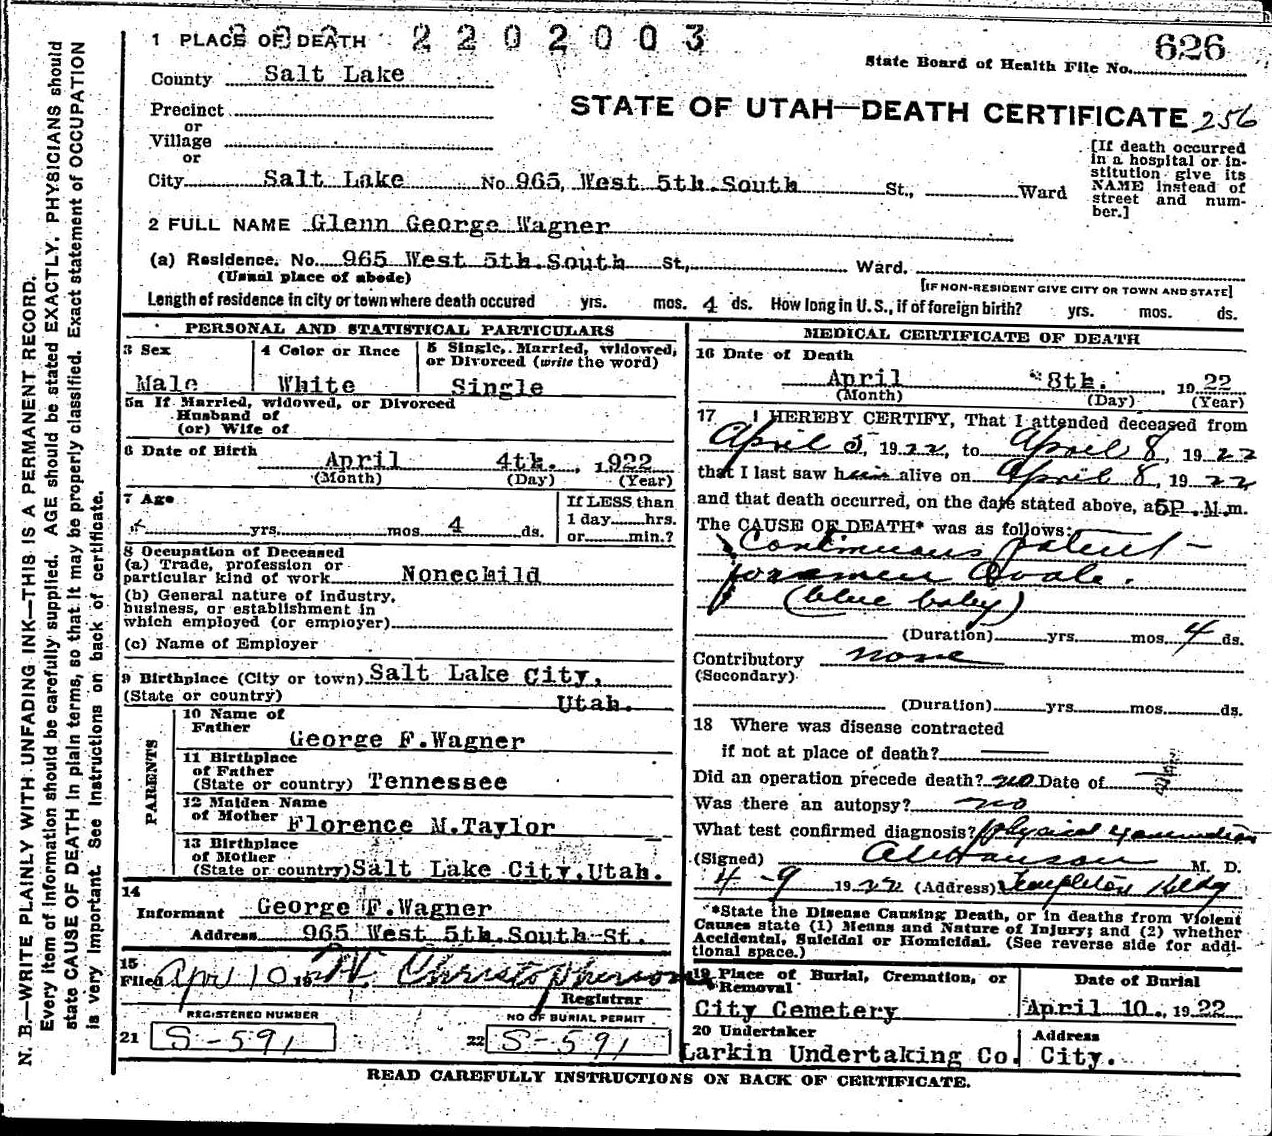 1 PLACE OF DEATH 2202003
626
State Board of Health File No.
County Salt Lake
STATE OF UTAH—DEATH CERTIFICATE 256
Precinct
or
Village
or
City Salt Lake No 965, West 5th. South St., Ward
[If death occurred
in a hospital or in-
stitution give its
NAME instead of
street and num-
ber.]
2 FULL NAME Glenn George Wagner
(a) Residence. No. 965 West 5th. South St., Ward.
(Usual place of abode)
[IF NON-RESIDENT GIVE CITY OR TOWN AND STATE]
Length of residence in city or town where death occured yrs. mos. 4 ds. How long in U.S., if of foreign birth? yrs. mos. ds.
PERSONAL AND STATISTICAL PARTICULARS
3 Sex
Male
4 Color or Race
White
5 Single, Married, widowed,
or Divorced (write the word)
Single
5a If Married, widowed, or Divorced
Husband of
(or) Wife of
6 Date of Birth April 4th. , 1922
(Month) (Day) (Year)
7 Age
yrs. mos 4 ds.
If LESS than
1 day hrs.
or min.?
8 Occupation of Deceased
(a) Trade, profession or
particular kind of work Nonechild
(b) General nature of industry,
business, or establishment in
which employed (or employer)
(c) Name of Employer
9 Birthplace (City or town) Salt Lake City,
(State or country) Utah.
PARENTS
10 Name of
Father George F.Wagner
11 Birthplace
of Father
(State or country) Tennessee
12 Maiden Name
of Mother Florence M.Taylor
13 Birthplace
of Mother
(State or country) Salt Lake City,Utah.
14
Informant George F.Wagner
Address 965 West 5th.South St.
15
Filed Apr 10 19 Christopherson
Registrar
REGISTERED NUMBER
21 S-591
NO OF BURIAL PERMIT
22 S-591
MEDICAL CERTIFICATE OF DEATH
16 Date of Death
April 8th. 1922
(Month) (Day) (Year)
17 I HEREBY CERTIFY, That I attended deceased from
April 5, 1922, to April 8, 1922
that I last saw him alive on April 8, 1922
and that death occurred, on the date stated above, at 5P.M.m.
The CAUSE OF DEATH* was as follows:
Continuous patent
foramen Ovale.
(blue baby)
(Duration) yrs. mos 4 ds.
Contributory none
(Secondary)
(Duration) yrs. mos. ds.
18 Where was disease contracted
if not at place of death?
Did an operation precede death? no Date of
Was there an autopsy? no
What test confirmed diagnosis? physical examination
(Signed) M. D.
4-9 1922 (Address) Templeton Bldg
*State the Disease Causing Death, or in deaths from Violent
Causes state (1) Means and Nature of Injury; and (2) whether
Accidental, Suicidal or Homicidal. (See reverse side for addi-
tional space.)
19 Place of Burial, Cremation, or
Removal
City Cemetery
Date of Burial
April 10., 1922
20 Undertaker
Larkin Undertaking Co.
Address
City.
READ CAREFULLY INSTRUCTIONS ON BACK OF CERTIFICATE.
N. B.—WRITE PLAINLY WITH UNFADING INK—THIS IS A PERMANENT RECORD.
Every item of information should be carefully supplied. AGE should be stated EXACTLY. PHYSICIANS should
state CAUSE OF DEATH in plain terms, so that it may be properly classified. Exact statement of OCCUPATION
is very important. See Instructions on back of certificate.